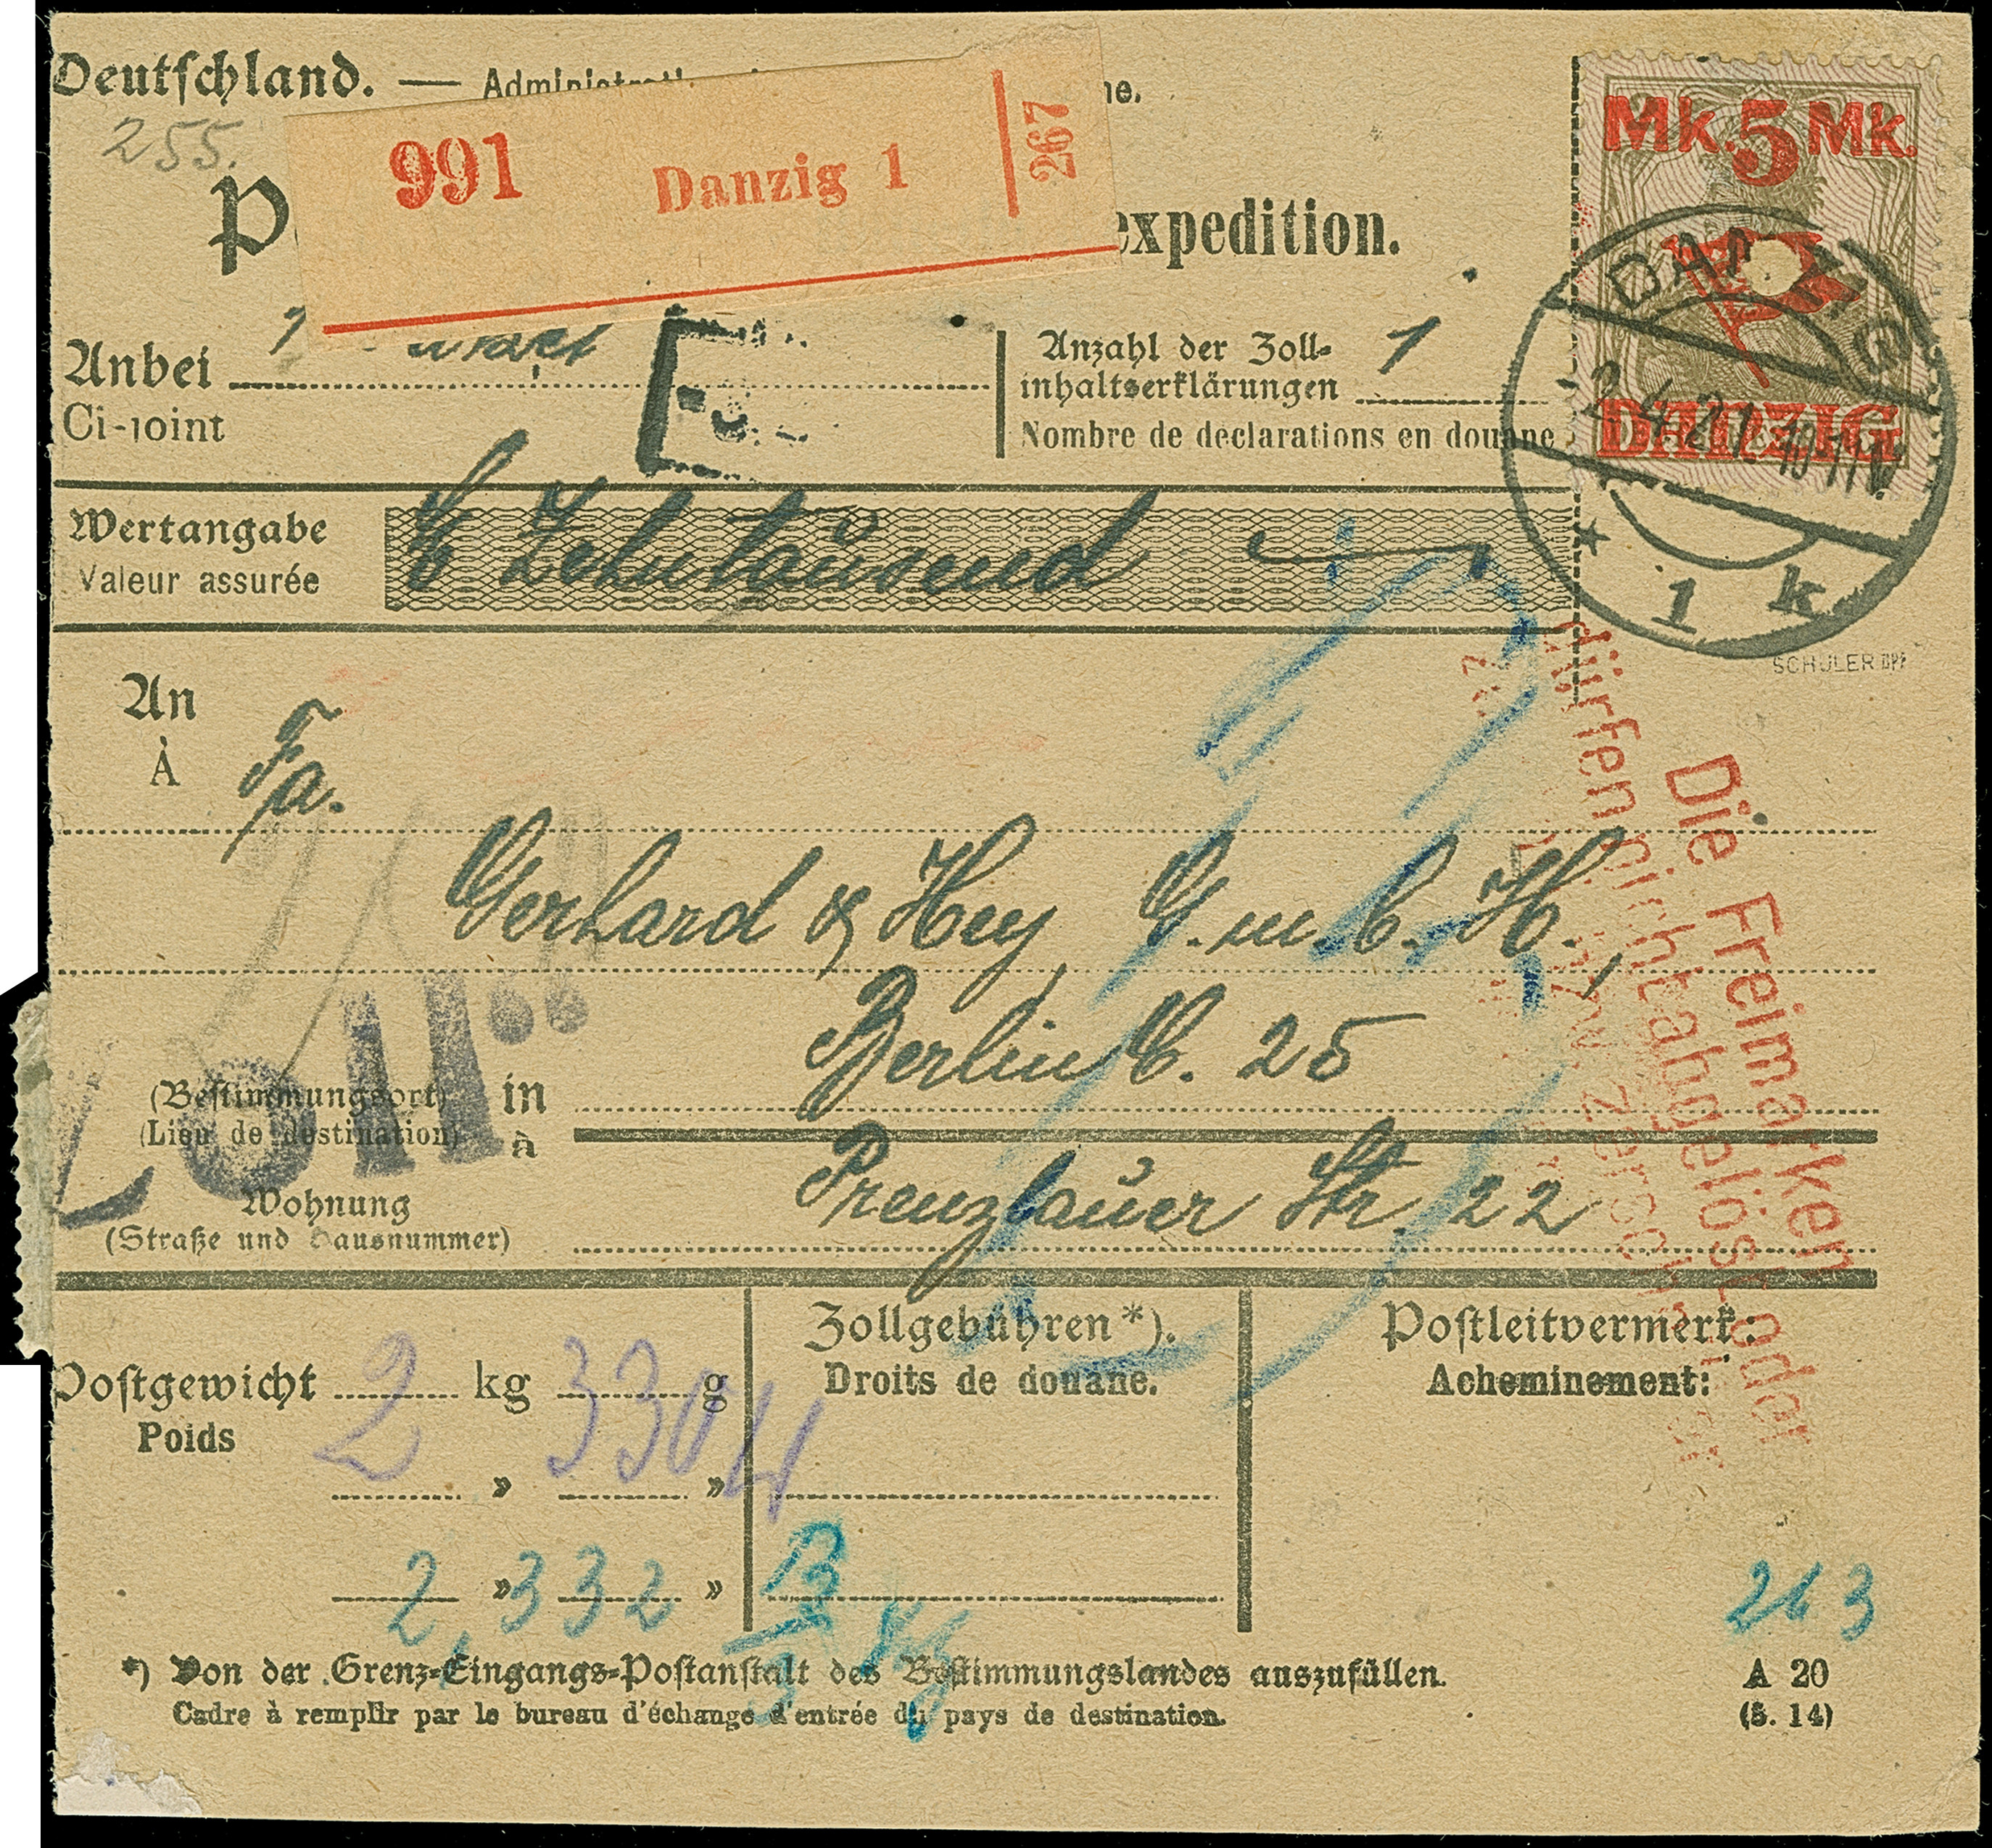 Deutschland. — Administrati
255.
991 Danzig 1 267
expedition.
Mk. 5 Mk.
DANZIG
DANZIG
2.4.21 10-11V.
1 k
Anbei 1
Ci-joint
Anzahl der Zoll- 1
inhaltserklärungen
Nombre de déclarations en douane
Wertangabe
Valeur assurée
Zehntausend
SCHÜLER
An
À
Fa.
Gerhard & Hey, G.m.b.H.,
(Bestimmungsort) in Berlin C. 25
(Lieu de destination) à
Zoll!!
Wohnung Prenzlauer Str. 22
(Straße und Hausnummer)
Die Freimarken
dürfen nicht abgelöst oder
Postgewicht 2 kg 330 g
Poids
2,332
Zollgebühren*).
Droits de douane.
Postleitvermerk:
Acheminement:
*) Von der Grenz-Eingangs-Postanstalt des Bestimmungslandes auszufüllen.
Cadre à remplir par le bureau d'échange d'entrée du pays de destination.
A 20
(5. 14)